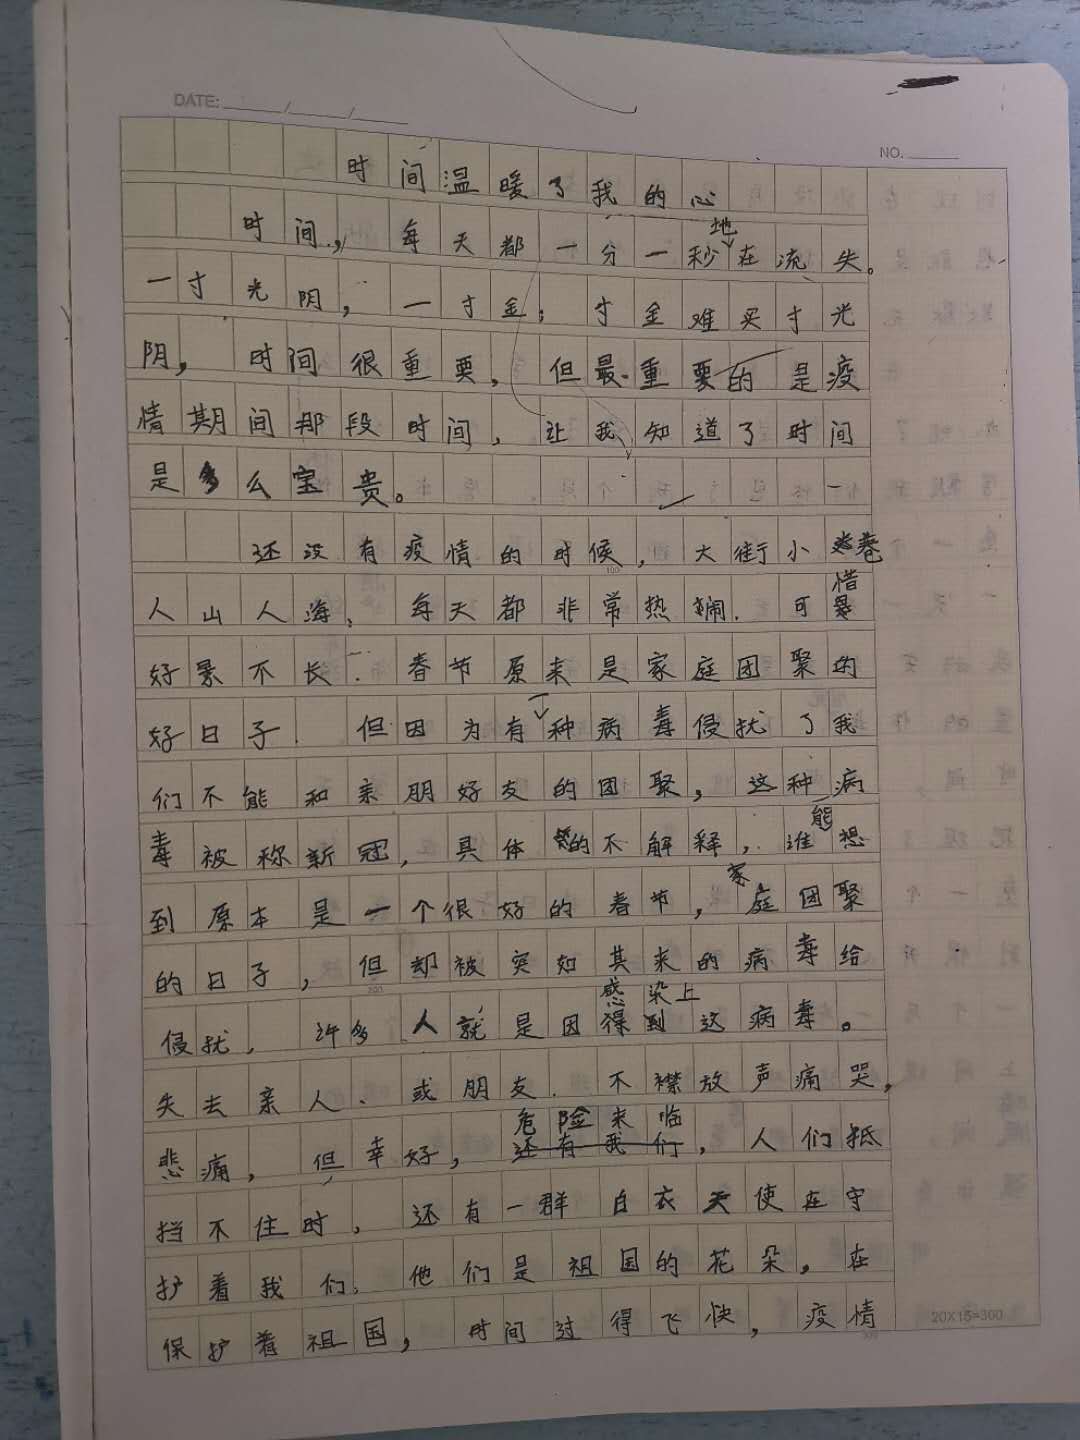 DATE: ____/____/____
NO. ____
时间温暖了我的心
时间，每天都一分一秒地在流失。
一寸光阴，一寸金；寸金难买寸光
阴，时间很重要，但最重要的是疫
情期间那段时间，让我知道了时间
是多么宝贵。
还没有疫情的时候，大街小巷
人山人海，每天都非常热闹．可惜
好景不长．春节原来是家庭团聚的
好日子．但因为有一种病毒侵扰了我
们不能和亲朋好友的团聚，这种病
毒被称新冠，具体的不解释，谁能想
到原本是一个很好的春节，家庭团聚
的日子，但却被突如其来的病毒给
侵扰，许多人就是因感染上这病毒。
失去亲人、或朋友．不襟放声痛哭，
悲痛，但幸好，危险来临，人们抵
挡不住时，还有一群白衣天使在守
护着我们，他们是祖国的花朵，在
保护着祖国，时间过得飞快，疫情
100
200
300
20X15=300